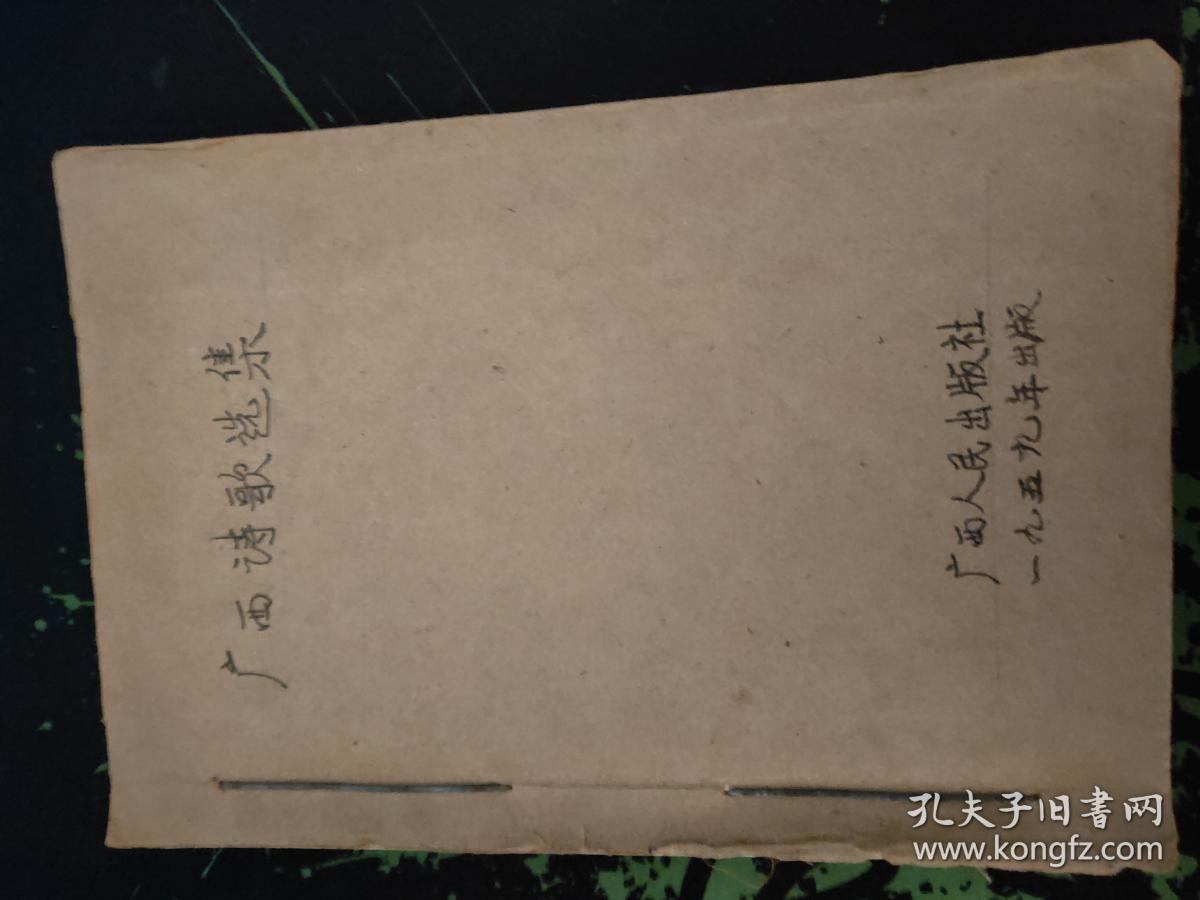 广西诗歌选集
广西人民出版社
一九五九年出版
孔夫子旧書网
www.kongfz.com